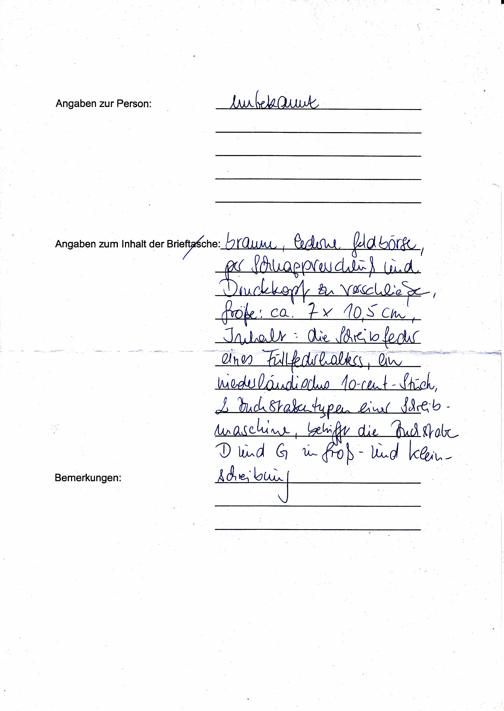 Angaben zur Person: unbekannt
Angaben zum Inhalt der Brieftasche: braune, lederne Geldbörse,
per Schnappverschluß und
Druckkopf zu verschließen,
Größe: ca. 7 x 10,5 cm,
Inhalt: die Schreibfeder
eines Füllfederhalters, ein
niederländisches 10-cent-Stück,
2 Buchstabentypen einer Schreib-
maschine, betrifft die Buchstabe
D und G in Groß- und Klein-
Bemerkungen: schreibung